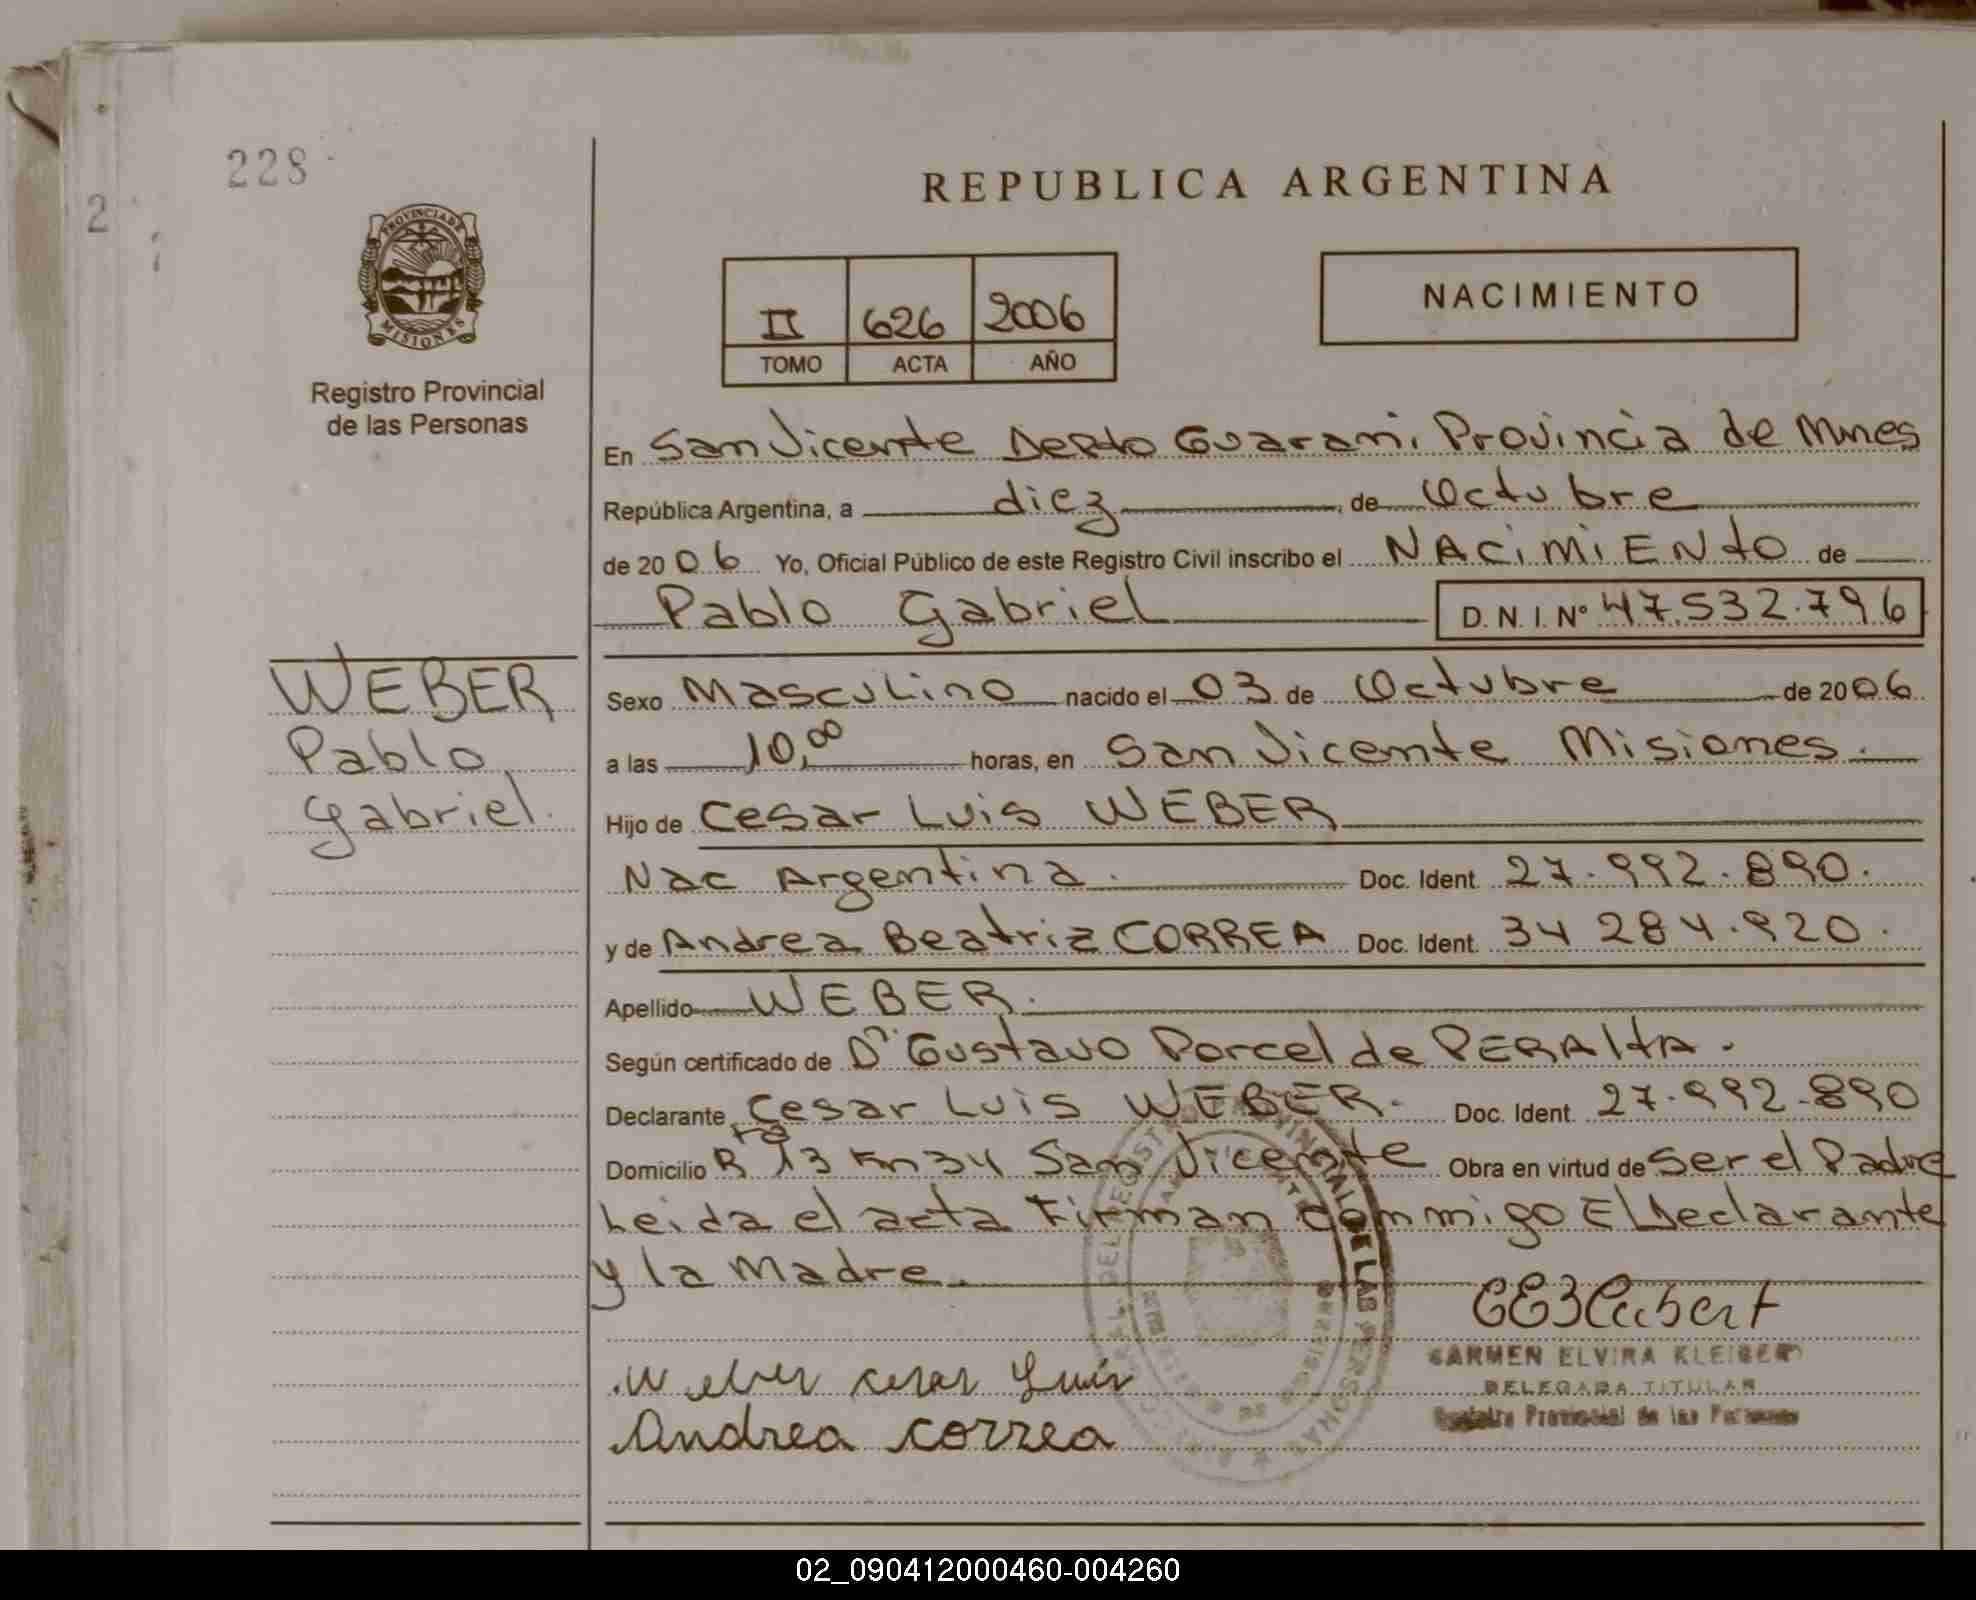 228
2
REPUBLICA ARGENTINA
PROVINCIA DE
MISIONES
Registro Provincial
de las Personas
II 626 2006
TOMO ACTA AÑO
NACIMIENTO
En San Vicente Depto Guarani Provincia de Mnes
República Argentina, a diez de Octubre
de 2006 Yo, Oficial Público de este Registro Civil inscribo el NACIMIENTO de
Pablo Gabriel D.N.I. Nº 47.532.796
WEBER
Pablo
Gabriel.
Sexo Masculino nacido el 03 de Octubre de 2006
a las 10,00 horas, en San Vicente Misiones.
Hijo de Cesar Luis WEBER
Nac Argentina. Doc. Ident. 27.992.890.
y de Andrea Beatriz CORREA Doc. Ident. 34 284.920.
Apellido WEBER.
Según certificado de Dr Gustavo Porcel de PERALTA.
Declarante Cesar Luis WEBER. Doc. Ident. 27.992.890
Domicilio Rta 13 Km 34 San Vicente Obra en virtud de Ser el Padre
Leida el acta Firman conmigo El Declarante
y la Madre.
Weber Cesar Luis
Andrea Correa
CARMEN ELVIRA KLEIBER
DELEGADA TITULAR
Registro Provincial de las Personas
02_090412000460-004260